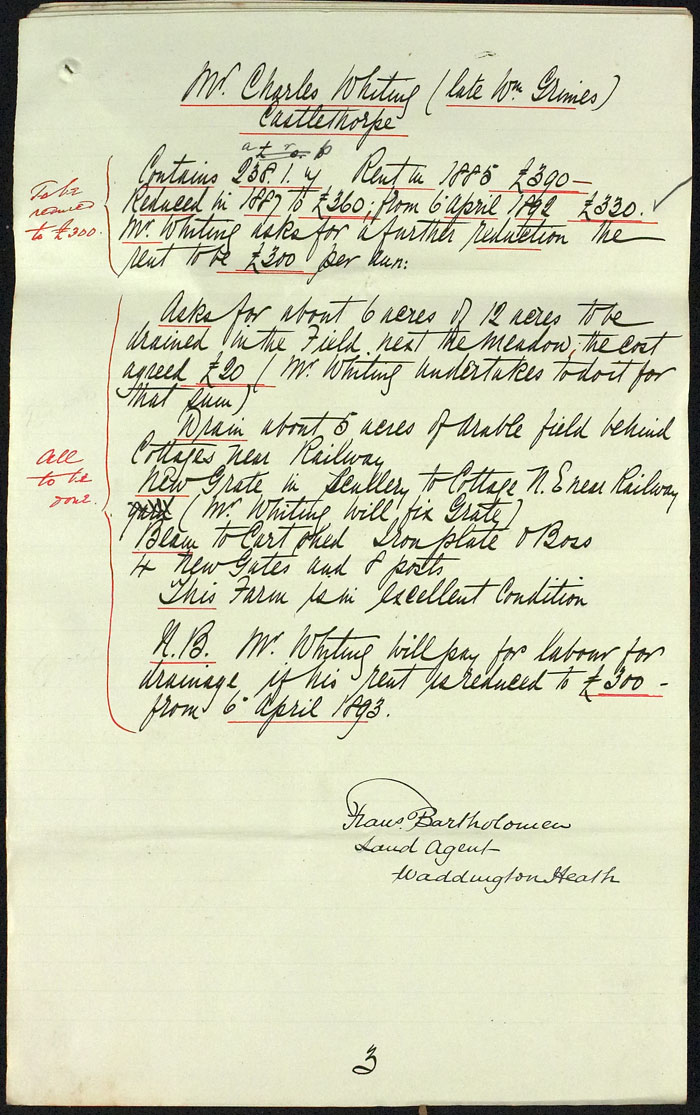 Mr. Charles Whiting (late Wm. Grimes)
Castlethorpe
a r p
Contains 238. 1. 4 Rent in 1885 £390 —
Reduced in 1887 to £360; from 6 April 1892 £330.
Mr. Whiting asks for a further reduction the
rent to be £300 per ann:
To be
reduced
to £300.
Asks for about 6 acres of 12 acres to be
drained in the Field next the Meadow, the cost
agreed £20 (Mr. Whiting undertakes to do it for
that sum)
Drain about 5 acres of Arable field behind
Cottages near Railway
New Grate in Scullery to Cottage N.E near Railway
(Mr. Whiting will fix Grate)
Beam to Cart shed Iron plate & Boss
4 New Gates and 8 posts
This Farm is in excellent Condition
All
to be
done.
N.B. Mr. Whiting will pay for labour for
drainage, if his rent is reduced to £300 —
from 6 April 1893.
Frans. Bartholomew
Land Agent
Waddington Heath
3